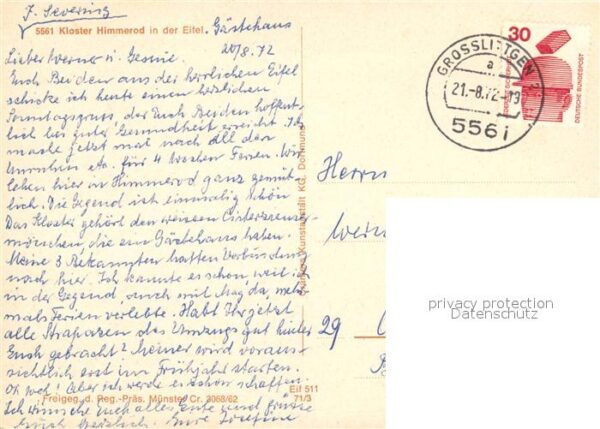 F. Severing
5561 Kloster Himmerod in der Eifel. Gästehaus
20/8. 72
Lieber Werner u. Gesine.
Euch Beiden aus der herrlichen Eifel
schicke ich heute einen herzlichen
Sonntagsgruss, der Euch Beiden hoffent-
lich bei guter Gesundheit erreicht. Ich
mache jetzt mal nach all der
Unruhen etc. für 4 Wochen Ferien. Wir
leben hier in Himmerod ganz gemüt-
lich. Die Gegend ist einmalig schön
Das Kloster gehört den weissen Cisterzienser-
mönchen, die ein Gästehaus haben.
Meine 3 Bekannten hatten Verbindung
nach hier. Ich kannte es schon, weil ich
in der Gegend, auch mit Mag, da, mehr-
mals Ferien verlebte. Habt Ihr jetzt
alle Strapazen des Umzugs gut hinter
Euch gebracht? Meiner wird voraus-
sichtlich erst im Frühjahr starten.
Oh weh! Aber ich werde es schon schaffen.
Ich wünsche Euch alles Gute und grüsse
Euch herzlich. Eure Josefine
Freigeg. d. Reg.-Präs. Münster Cr. 3068/62
Eif 511
71/3
Kunstanstalt KG, Dortmund
GROSSLITTGEN
a
21.-8.72-19
5561
30
DEUTSCHE BUNDESPOST
Herrn
Wern
29
privacy protection
Datenschutz